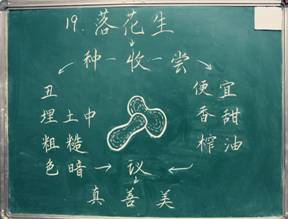 19. 落花生
种—收—尝
丑 便宜
埋土中 香甜
粗糙 榨油
色暗→议←
真善美